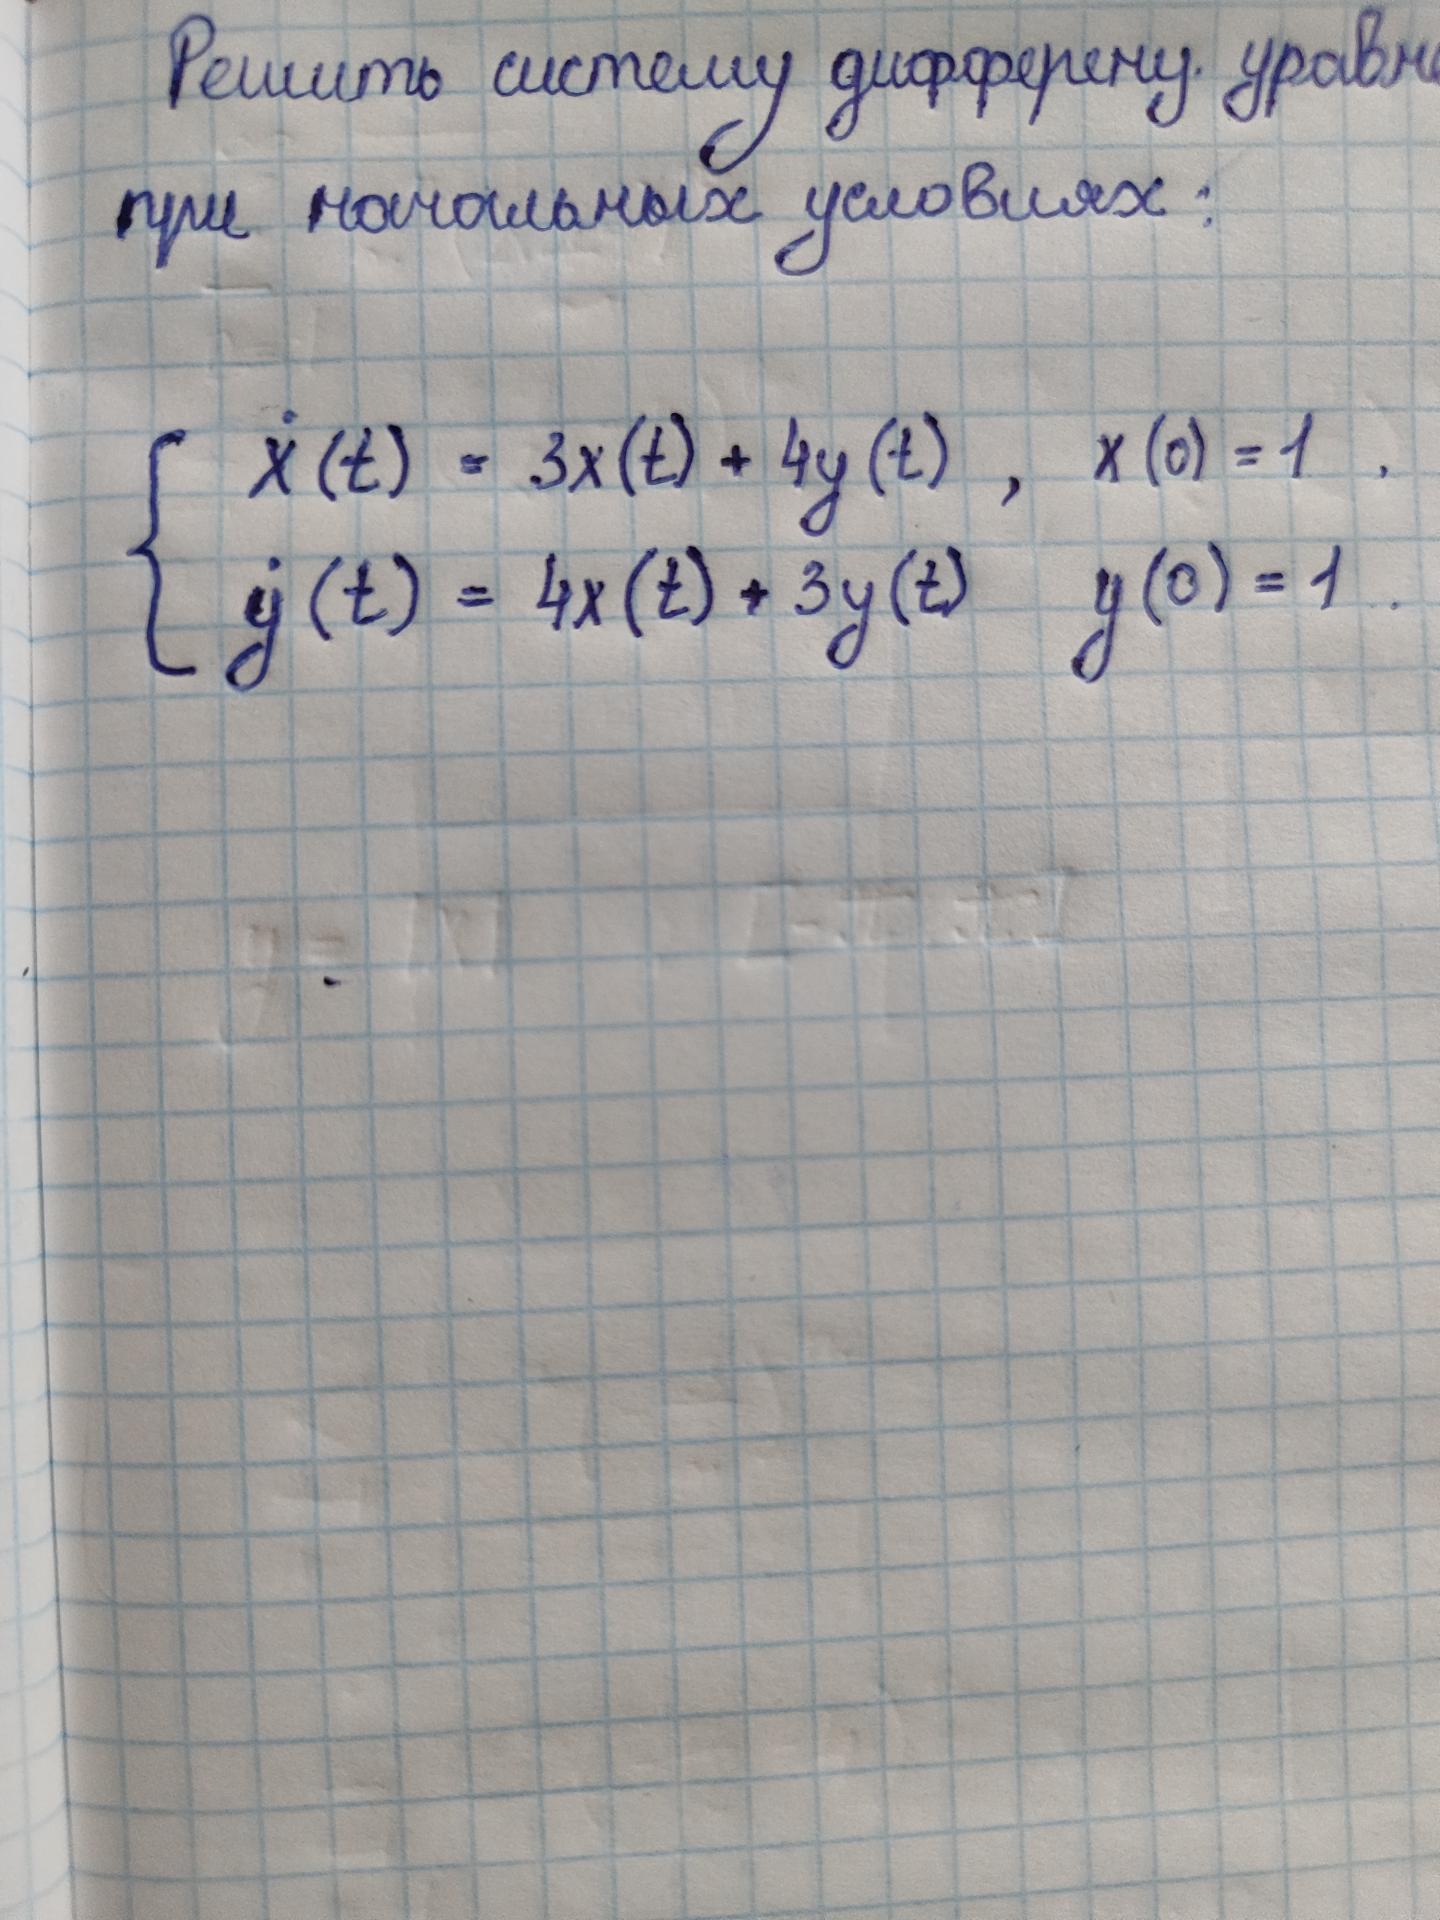 Решить систему дифференц. уравне
при начальных условиях:
ẋ(t) = 3x(t) + 4y(t), x(0) = 1.
ẏ(t) = 4x(t) + 3y(t) y(0) = 1.